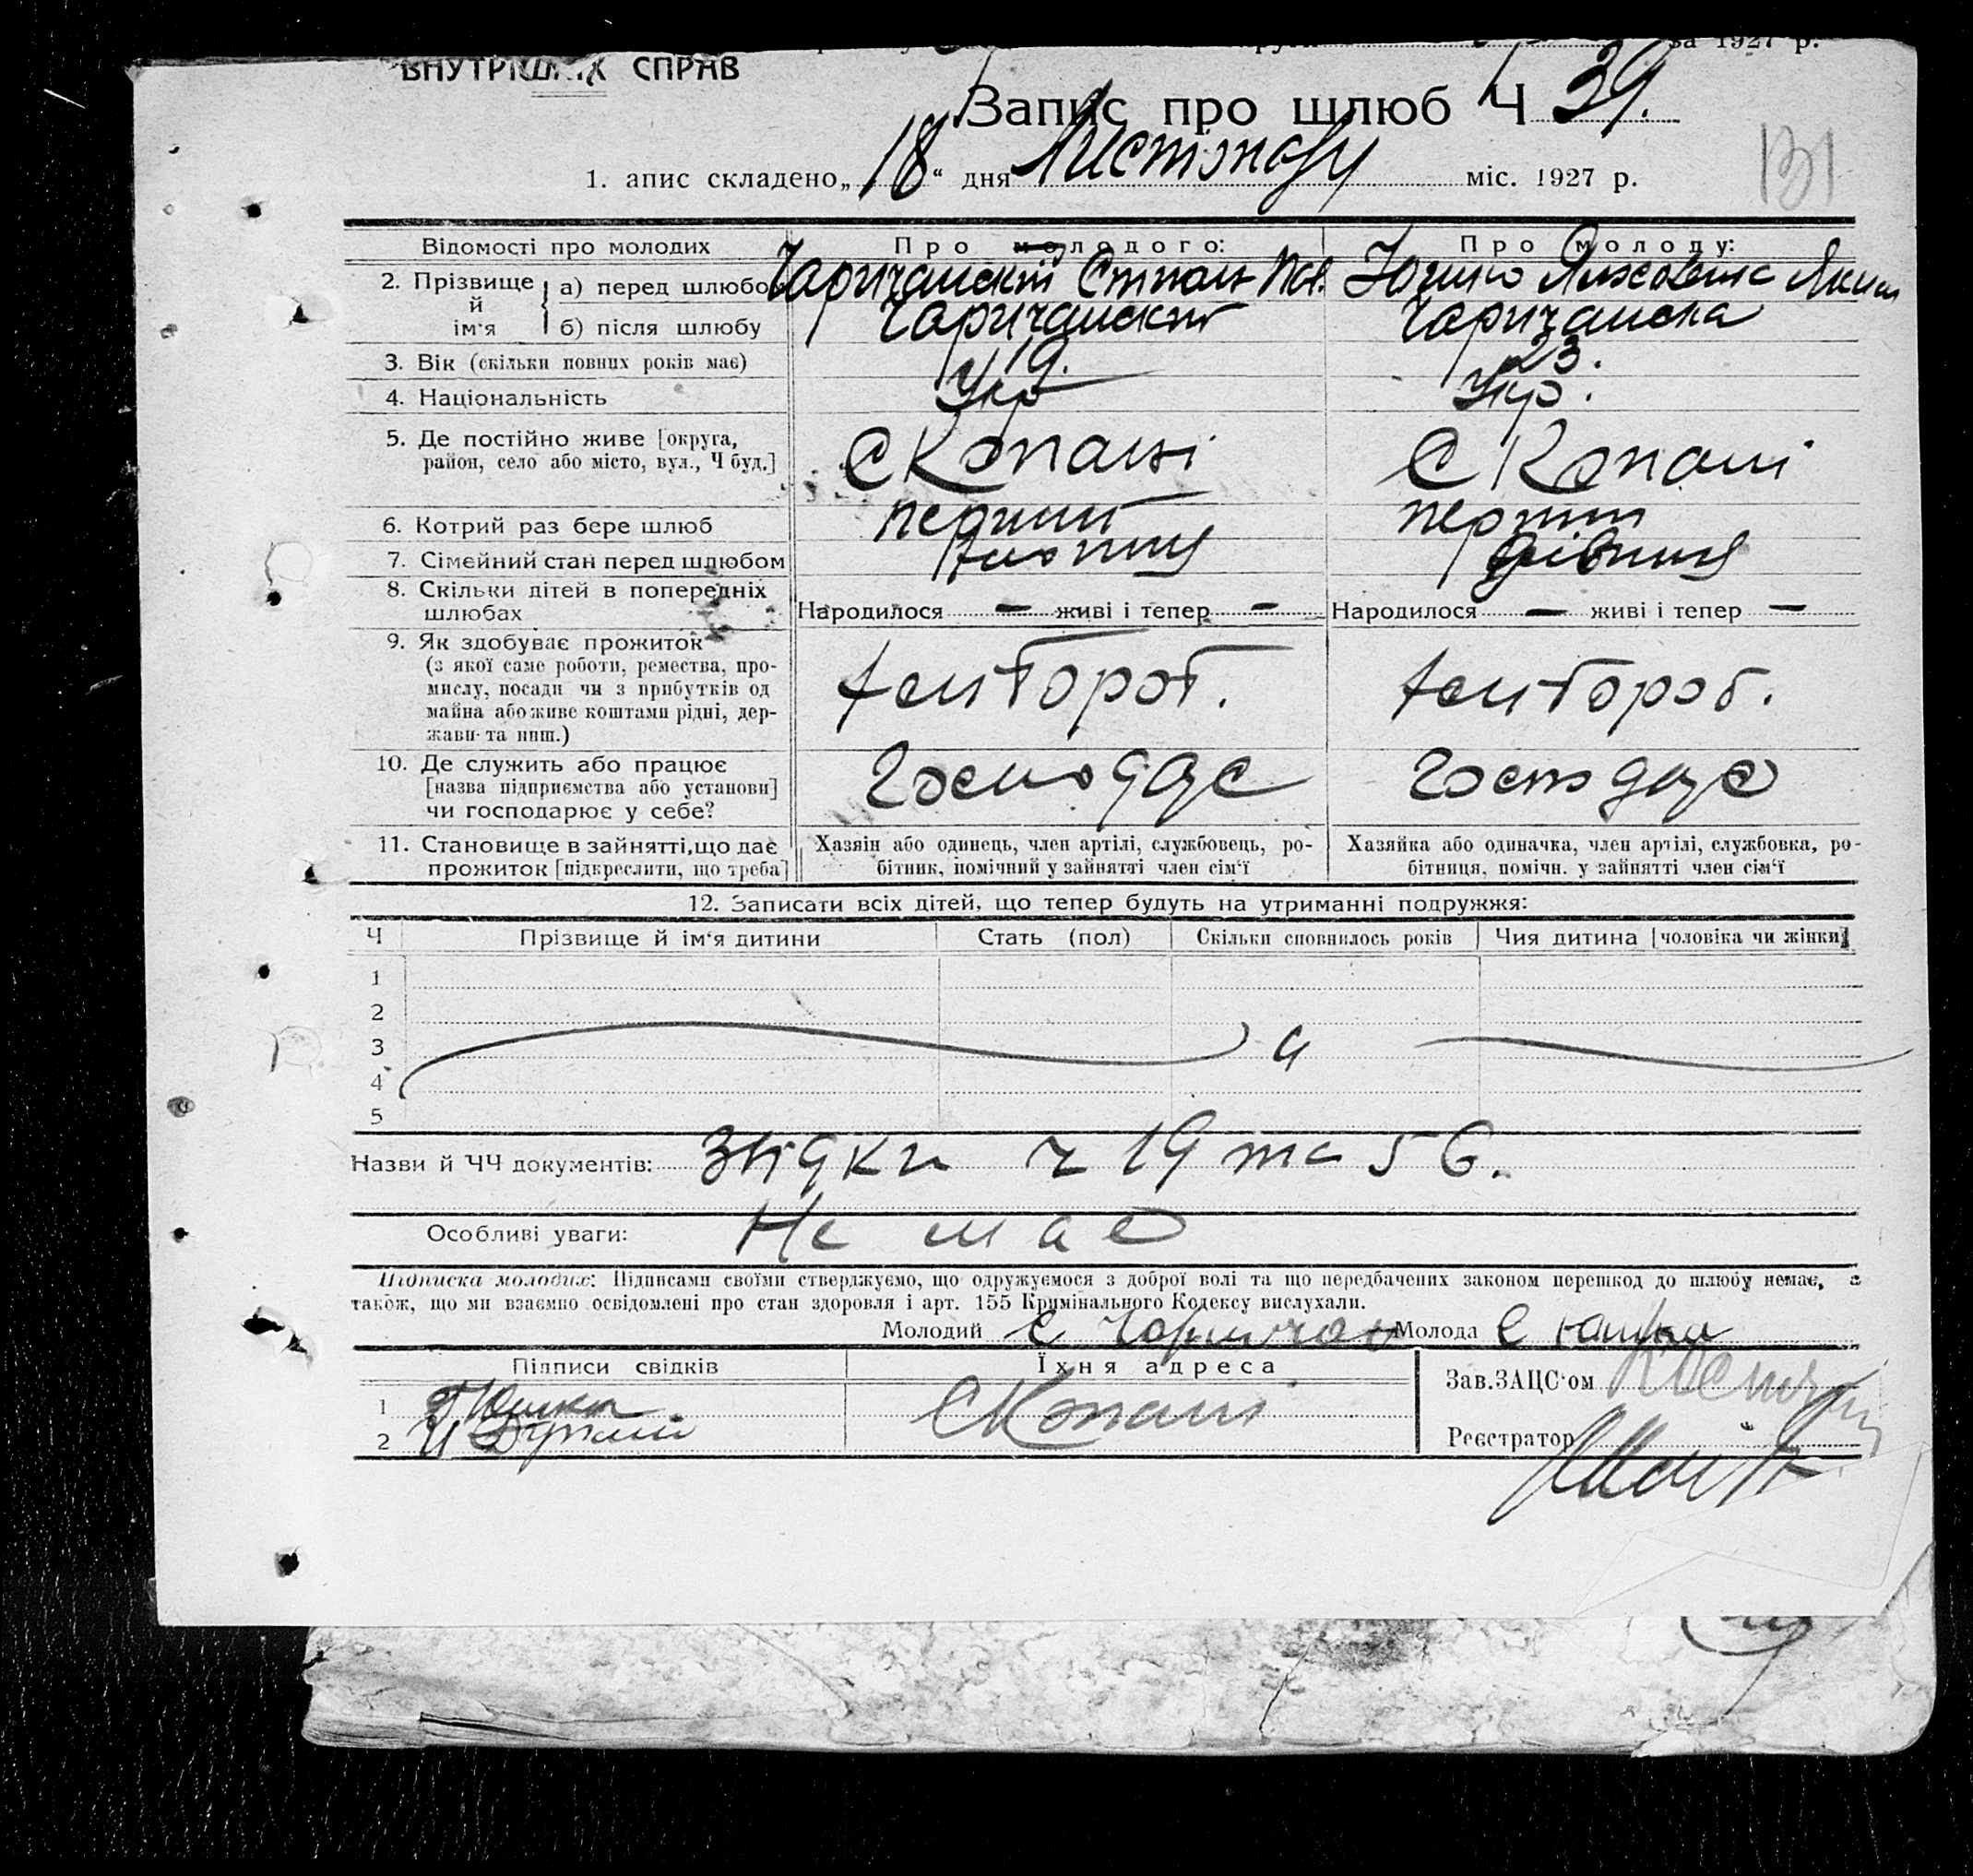 за 1927 р.
ВНУТРІШНІХ СПРАВ
Запис про шлюб Ч 39.
131
1. апис складено „18“ дня Листопаду міс. 1927 р.
Відомості про молодих
Про молодого:
Про молоду:
2. Прізвище й ім'я
а) перед шлюбо
Чаричанский Степан
Юшко Якии
б) після шлюбу
Чаричанский
Чаричанска
3. Вік (скільки повних років має)
19.
23.
4. Національність
Укр
Укр.
5. Де постійно живе [округа,
район, село або місто, вул., Ч буд.]
С Копані
С Копані
6. Котрий раз бере шлюб
перший
перший
7. Сімейний стан перед шлюбом
дівиця
8. Скільки дітей в попередніх
шлюбах
Народилося — живі і тепер —
Народилося — живі і тепер —
9. Як здобуває прожиток
(з якої саме роботи, ремества, про-
мислу, посади чи з прибутків од
майна або живе коштами рідні, дер-
жави та инш.)
хліборob.
хлібороб.
10. Де служить або працює
[назва підприємства або установи]
чи господарює у себе?
Господарє
Господарє
11. Становище в зайнятті, що дає
прожиток [підкреслити, що треба]
Хазяін або одинець, член артілі, службовець, ро-
бітник, помічний у зайнятті член сім‘ї
Хазяйка або одиначка, член артілі, службовка, ро-
бітниця, помічн. у зайнятті член сім‘ї
12. Записати всіх дітей, що тепер будуть на утриманні подружжя:
Ч Прізвище й ім‘я дитини Стать (пол) Скільки сповнилось років Чия дитина [чоловіка чи жінки]
1
2
3
4
5
Назви й ЧЧ документів: Звідки ч 19 та 56.
Особливі уваги: Не має
Підписка молодих: Підписами своїми стверджуємо, що одружуємося з доброї волі та що передбачених законом перешкод до шлюбу немає, а
також, що ми взаємно освідомлені про стан здоровля і арт. 155 Кримінального Кодексу вислухали.
Молодий С Чаричан Молода Є Юшко
Підписи свідків
Їхня адреса
Зав.ЗАЦС‘ом
1
2
С Копані
Реєстратор